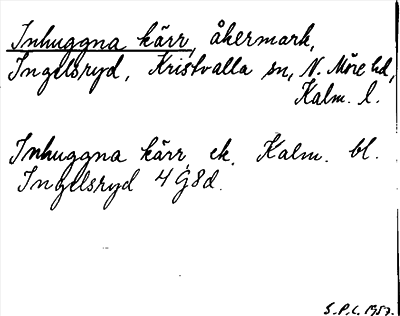 Inhuggna kärr, åkermark,
Ingelsryd, Kristvalla sn, N. Möre hd,
Kalm. l.
Inhuggna kärr, ek. Kalm. bl.
Ingelsryd 4 G8d.
S.P.L. 1957.